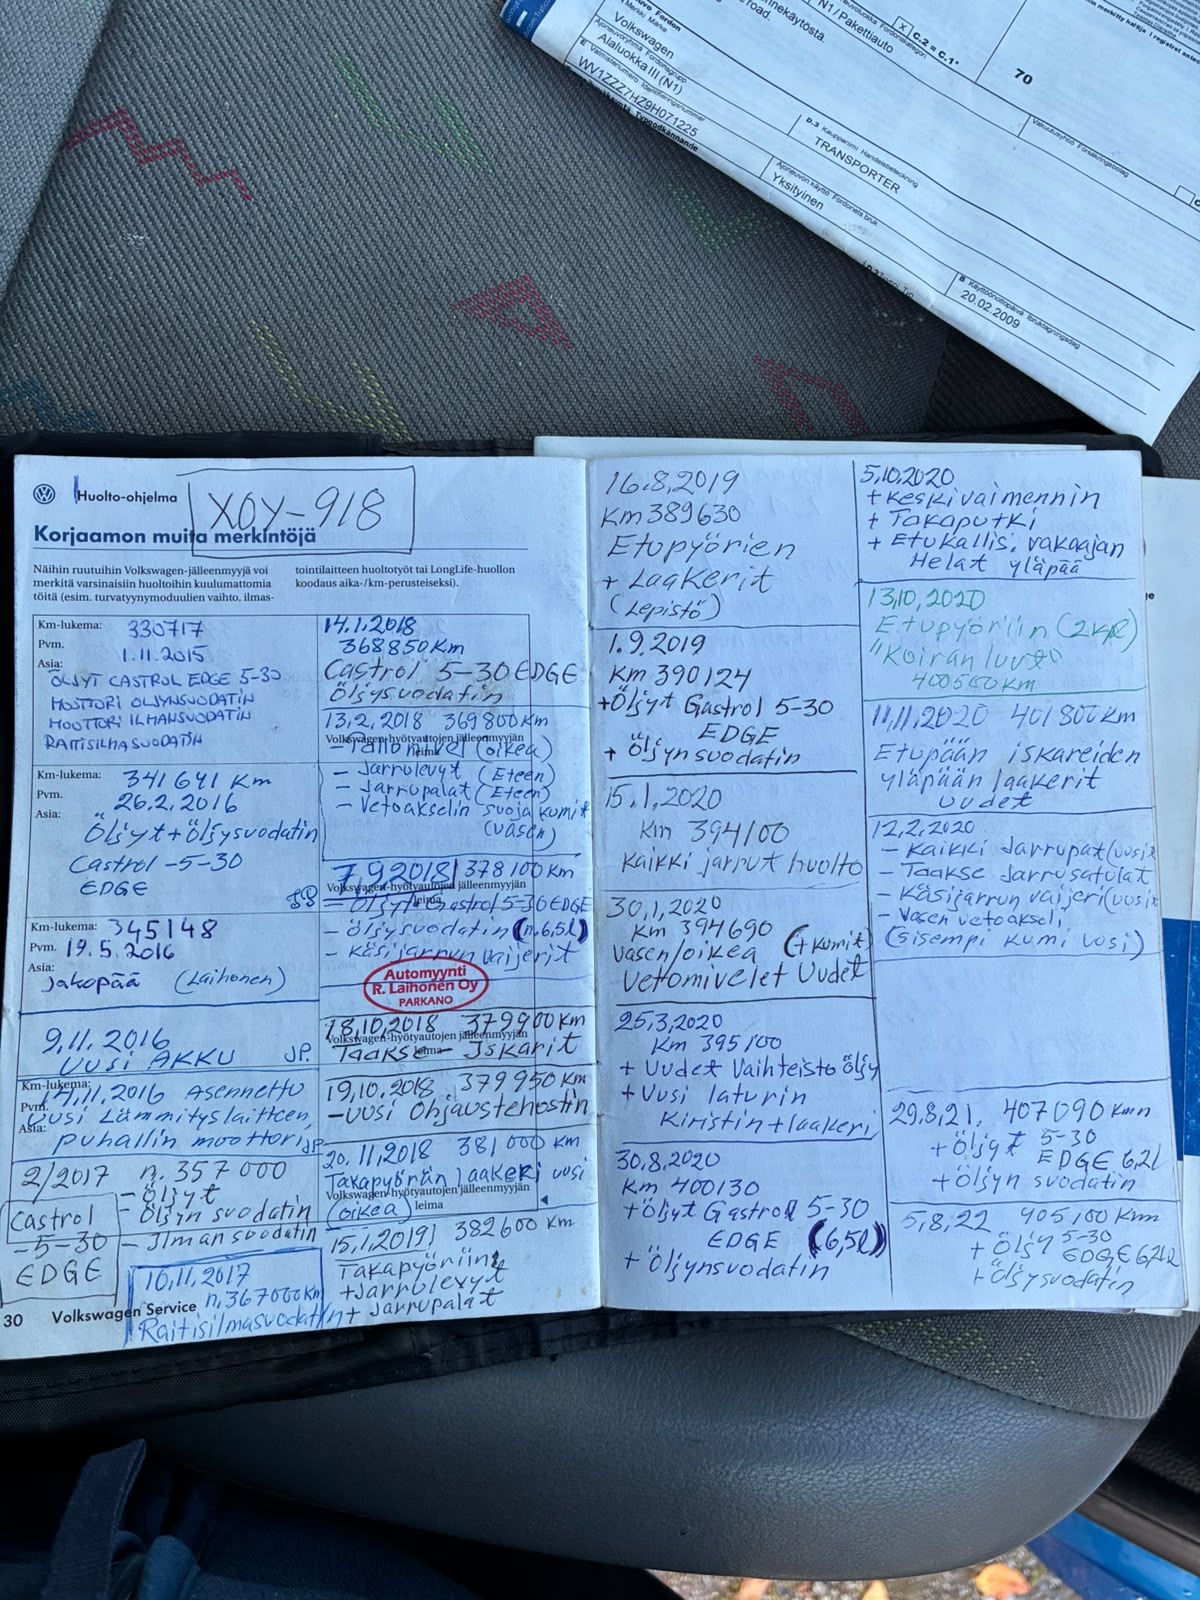 Merkki Marke
Volkswagen
Ajoneuvoryhmä Fordonsgrupp
Alaluokka III (N1)
E Valmistenumero Identifieringsnummer
WV1ZZZ7HZ9H071225
N1/Pakettiauto
X C.2 = C.1*
70
D.3 Kauppanimi Handelsbeteckning
TRANSPORTER
Ajoneuvon käyttö Fordonets bruk
Yksityinen
Vakuutusyhtiö Försäkringsbolag
B Käyttöönottopäivä Ibruktagningsdag
20.02.2009
Huolto-ohjelma
XOY-918
Korjaamon muita merkintöjä
Näihin ruutuihin Volkswagen-jälleenmyyjä voi
merkitä varsinaisiin huoltoihin kuulumattomia
töitä (esim. turvatyynymoduulien vaihto, ilmas-
tointilaitteen huoltotyöt tai LongLife-huollon
koodaus aika-/km-perusteiseksi).
Km-lukema: 330717
Pvm. 1.11.2015
Asia:
ÖLJYT CASTROL EDGE 5-30
MOOTTORI ÖLJYNSUODATIN
MOOTTORI ILMANSUODATIN
RAITISILMASUODATIN
Km-lukema: 341641 Km
Pvm. 26.2.2016
Asia: Öljyt+Öljysuodatin
Castrol -5-30
EDGE
Km-lukema: 345148
Pvm. 19.5.2016
Asia: Jakopää (Laihonen)
9.11.2016
UUSI AKKU JP.
Km-lukema:
Pvm.
Asia:
14.11.2016 Asennettu
Uusi Lämmityslaitteen,
puhallin moottori JP
2/2017 n. 357 000
- öljyt
- Öljyn suodatin
- Ilman suodatin
Castrol
-5-30
EDGE
10.11.2017
n, 367000Km
Raitisilmasuodatin
30 Volkswagen Service
14.1.2018
368850Km
Castrol 5-30 EDGE
Öljysuodatin
13.2.2018 369800Km
- Pallonivel (oikea)
- Jarrulevyt (Eteen)
- Jarrupalat (Eteen)
- Vetoakselin suoja kumit
(vasen)
7.9.2018 378100Km
Volkswagen-hyötyautojen jälleenmyyjän
leima
- Öljyt Castrol 5-30 EDGE
- öljysuodatin (n.6,5l)
- Käsijarrun vaijerit
Automyynti
R. Laihonen Oy
PARKANO
18.10.2018 379900Km
Volkswagen-hyötyautojen jälleenmyyjän
leima
Taakse - Iskarit
19.10.2018 379950Km
- uusi ohjaustehostin
20.11.2018 381000 Km
Takapyörän laakeri uusi
Volkswagen-hyötyautojen jälleenmyyjän
leima
(oikea)
15.1.2019 382600 Km
Takapyöriin
+Jarrulevyt
+ Jarrupalat
16.8.2019
Km 389630
Etupyörien
+ Laakerit
(Lepistö)
1.9.2019
Km 390124
+Öljyt Gastrol 5-30
EDGE
+ Öljynsuodatin
15.1.2020
Km 394100
Kaikki jarrut huolto
30.1.2020
Km 394690
vasen/oikea (+kumit)
Vetonivelet Uudet
25.3.2020
Km 395100
+ Uudet Vaihteisto öljy
+ Uusi laturin
Kiristin+laakeri
30.8.2020
Km 400130
+Öljyt Gastrol 5-30
EDGE (6,5l)
+ Öljynsuodatin
5.10.2020
+ Keskivaimennin
+ Takaputki
+ Etukallis. vakaajan
Helat yläpää
13.10.2020
Etupyöriin (2kpl)
"Koiran luut"
400560km
11.11.2020 401800Km
Etupään iskareiden
yläpään laakerit
uudet
12.2.2020
- Kaikki Jarrupat (uusit
- Taakse Jarrusatulat
- Käsijarrun vaijeri (uusit
- Vasen vetoakseli
(sisempi kumi uusi)
29.8.21. 407090 Kmn
+ Öljyt 5-30
EDGE 6,2l
+ Öljyn suodatin
5.8.22 405100 Kmn
+ Öljy 5-30
EDGE 6,2l
+Öljysuodatin